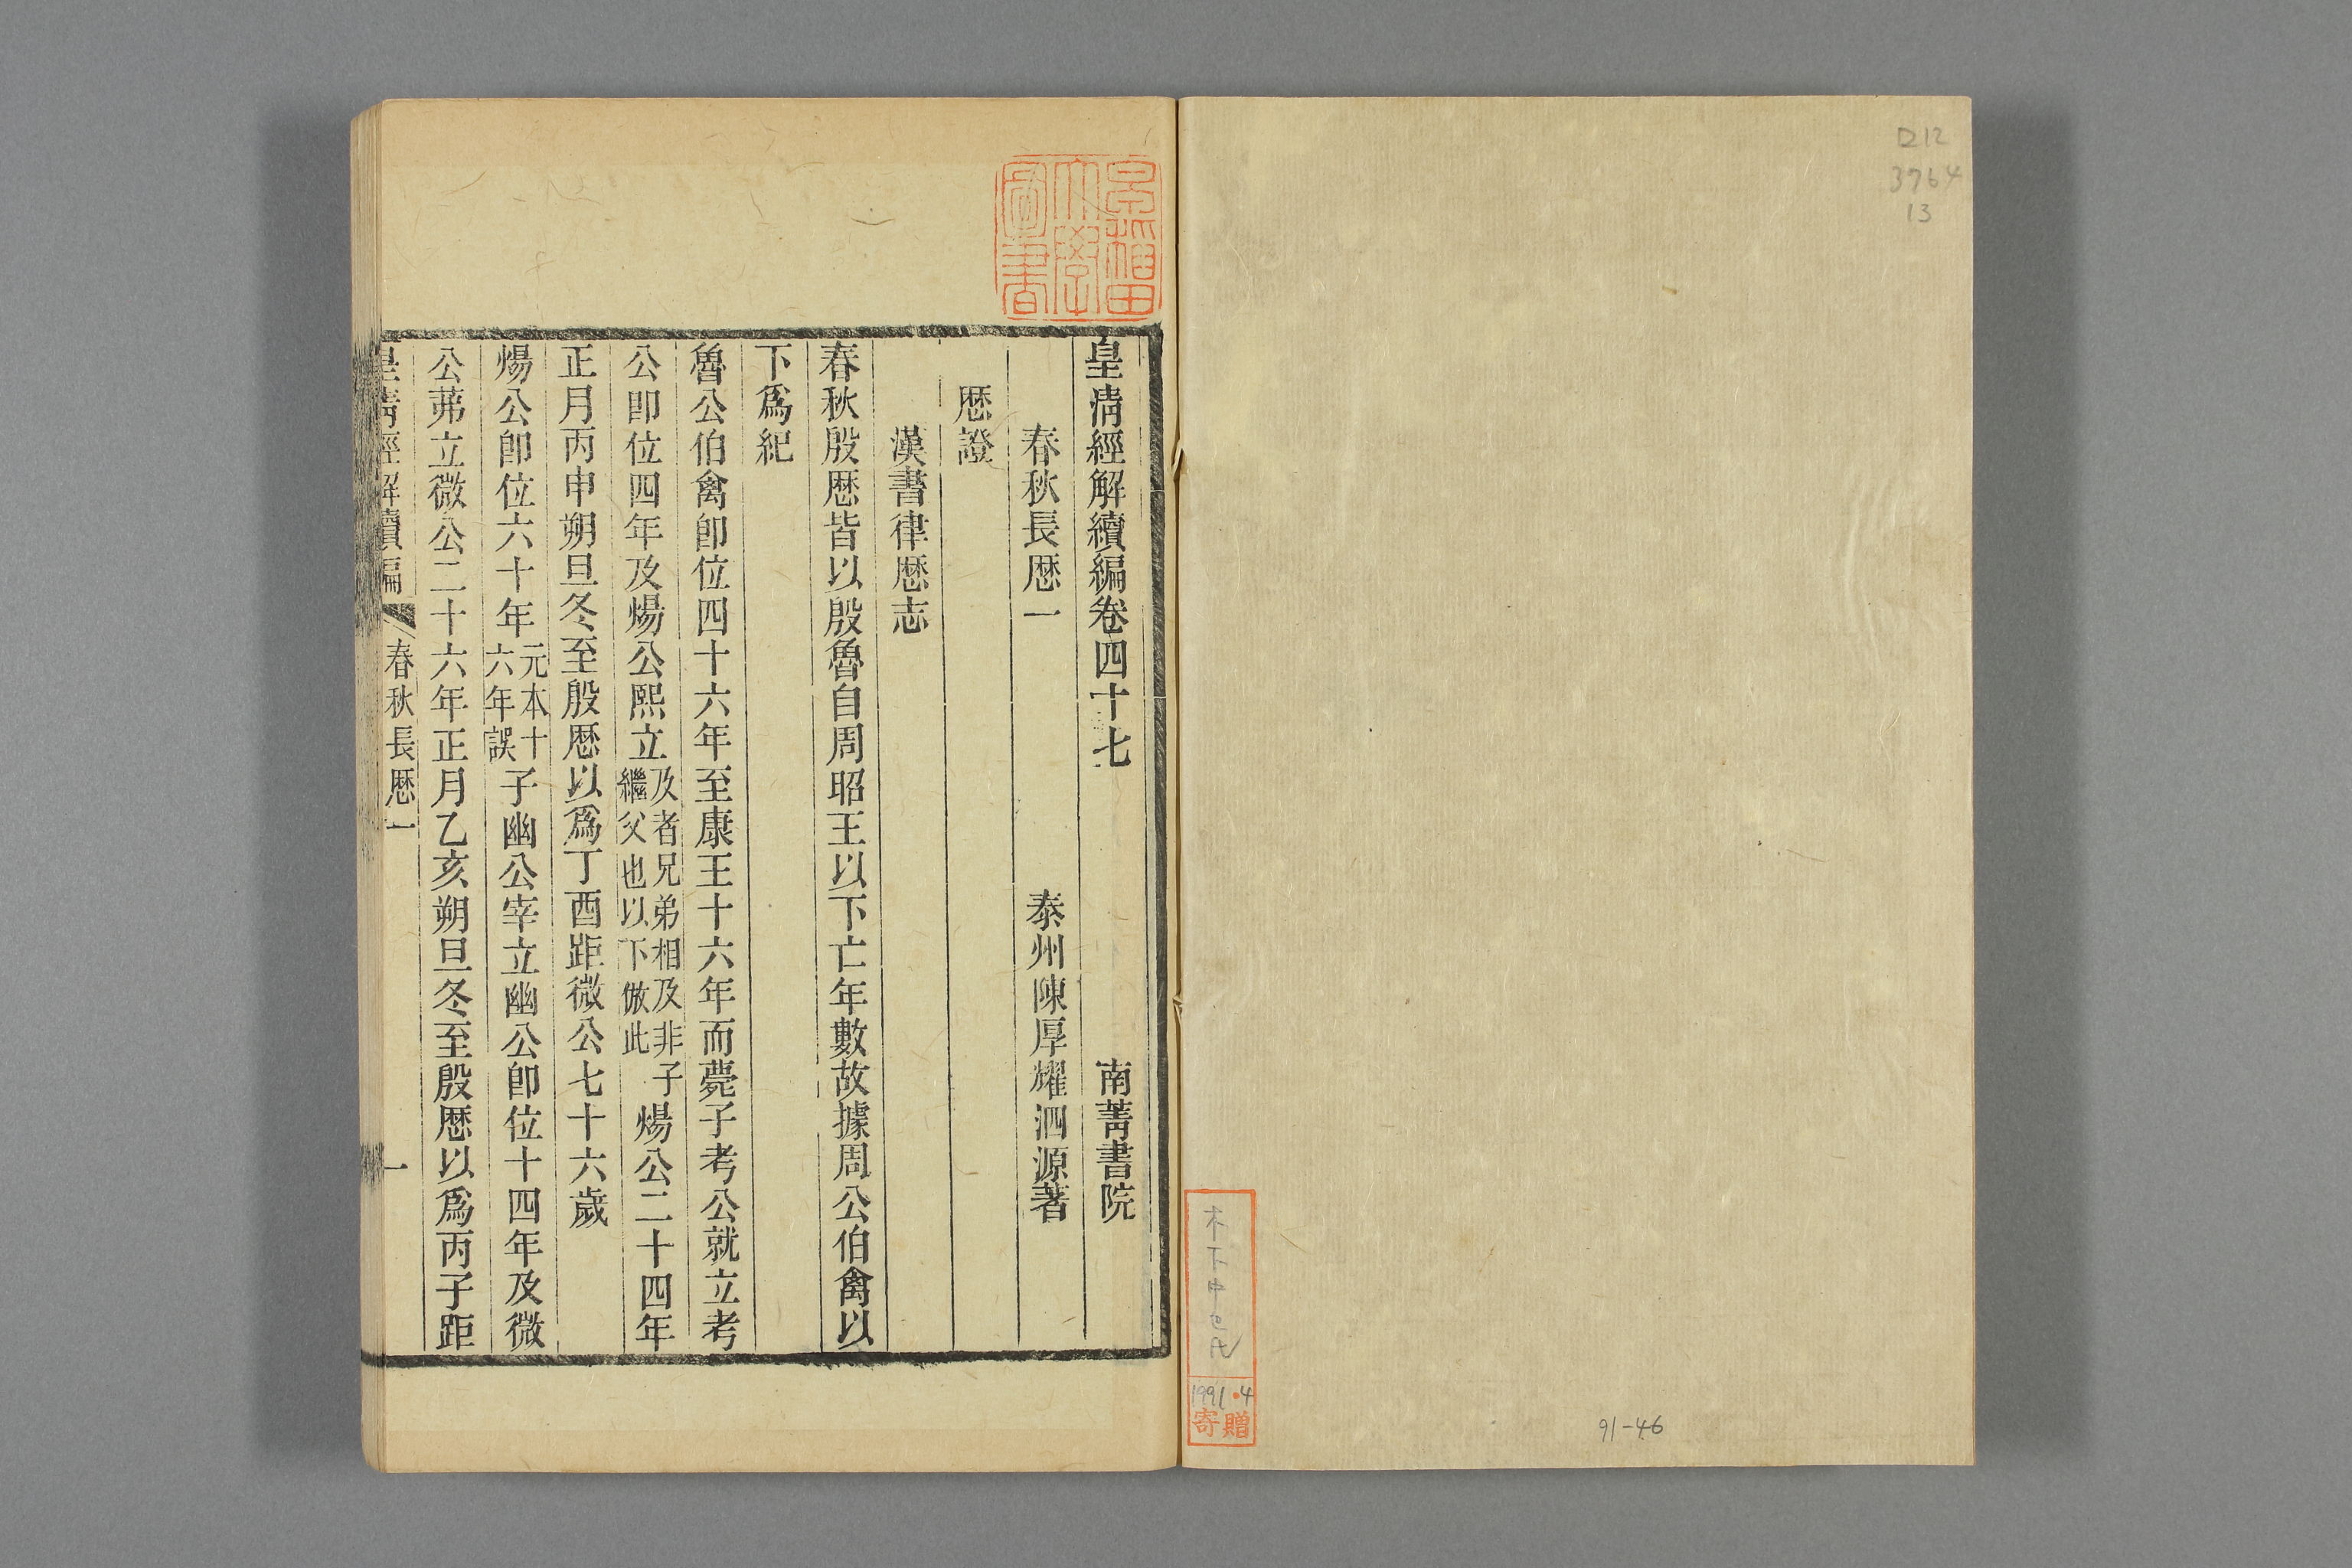 D12
3764
13
木下中已氏
1991・4
寄贈
91-46
早稲田大學圖書
皇清經解續編卷四十七 南菁書院
春秋長厯一 泰州陳厚耀泗源著
厯證
漢書律厯志
春秋殷厯皆以殷魯自周昭王以下亡年數故據周公伯禽以
下爲紀
魯公伯禽卽位四十六年至康王十六年而薨子考公就立考
公卽位四年及煬公熙立及者兄弟相及非子繼父也以下倣此煬公二十四年
正月丙申朔旦冬至殷厯以爲丁酉距微公七十六歲
煬公卽位六十年元本十六年誤子幽公宰立幽公卽位十四年及微
公茀立微公二十六年正月乙亥朔旦冬至殷厯以爲丙子距
皇清經解續編 春秋長厯一 一